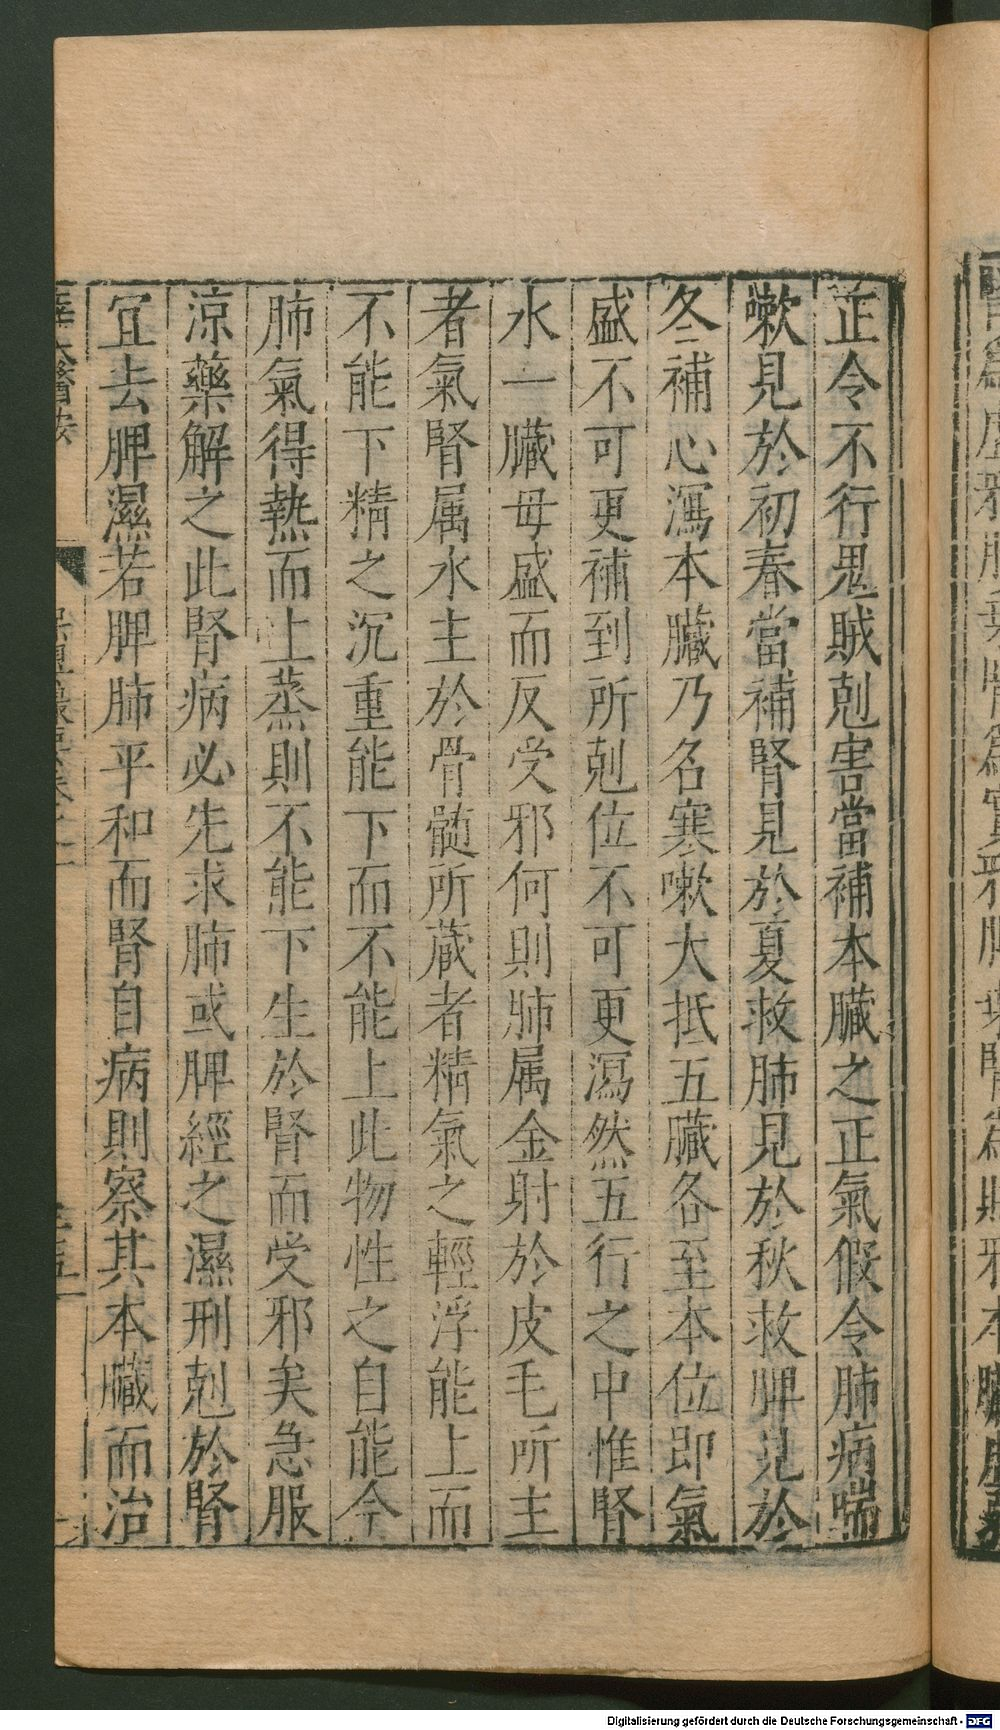 正令不行鬼賊剋害當補本臟之正氣假令肺病喘
嗽見於初春當補腎見於夏救肺見於秋救脾見於
冬補心瀉本臟乃名寒嗽大抵五臟各至本位即氣
盛不可更補到所剋位不可更瀉然五行之中惟腎
水一臟母盛而反受邪何則肺属金射於皮毛所主
者氣腎属水主於骨髓所蔵者精氣之輕浮能上而
不能下精之沉重能下而不能上此物性之自能今
肺氣得熱而上蒸則不能下生於腎而受邪矣急服
涼藥解之此腎病必先求肺或脾經之濕刑剋於腎
宜去脾濕若脾肺平和而腎自病則察其本臟而治
Digitalisierung gefördert durch die Deutsche Forschungsgemeinschaft - DFG